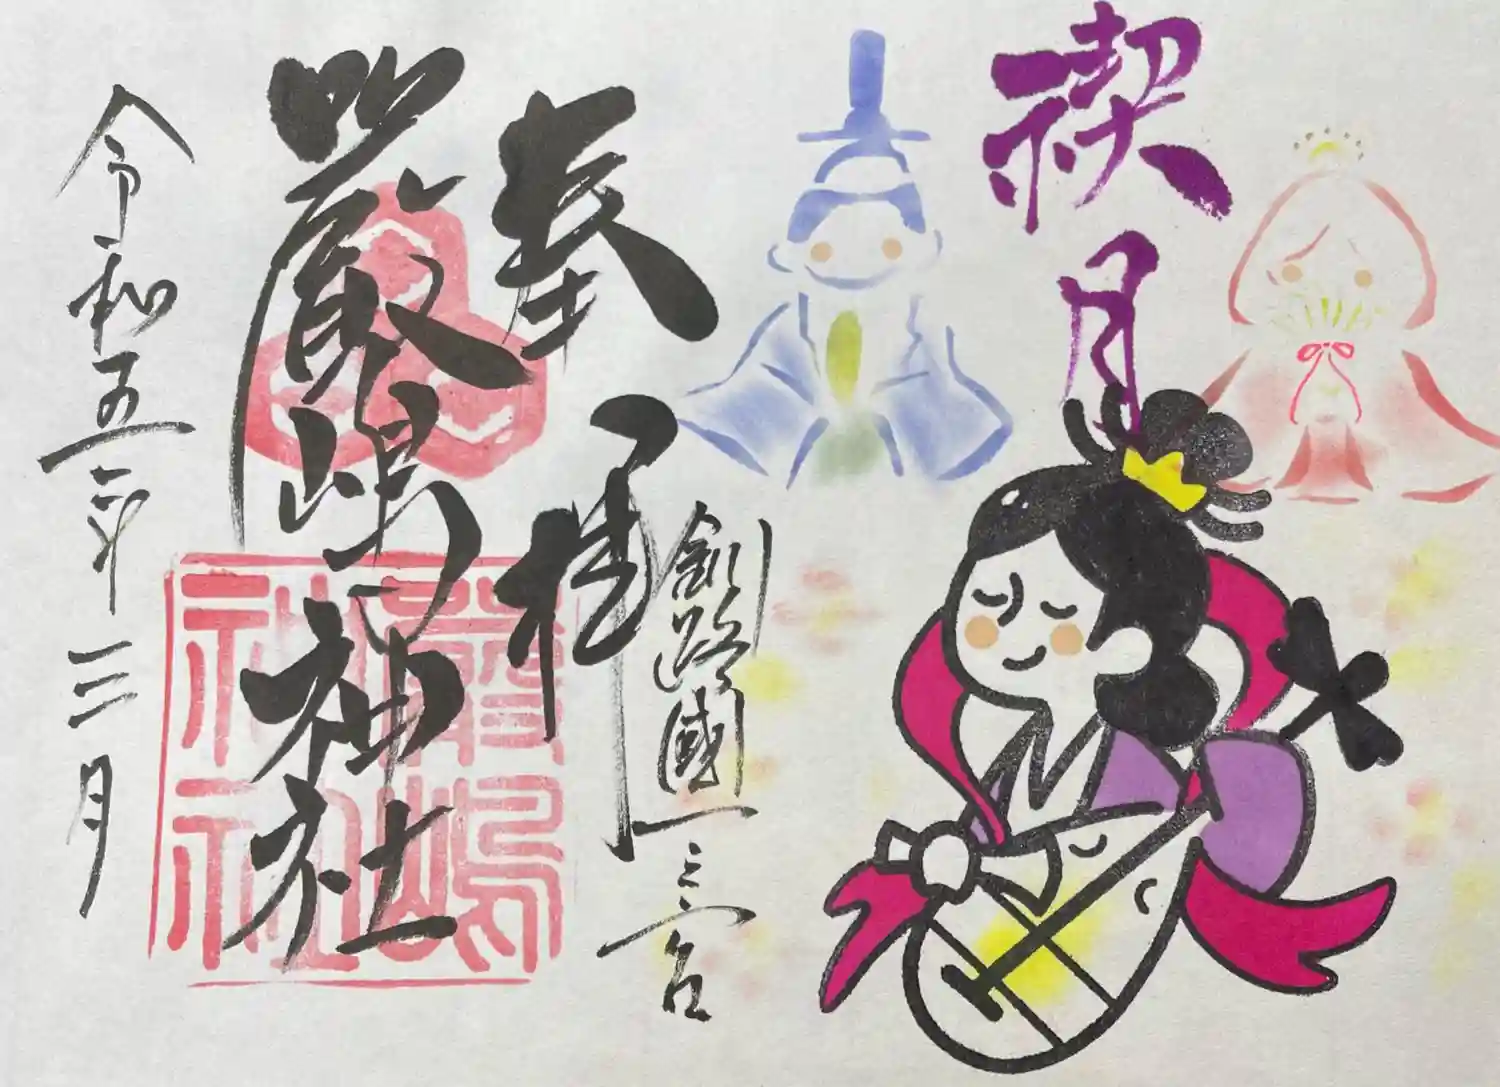 禊月
奉拝
釧路國一之宮
厳嶋神社
厳嶋
神社
令和五年三月